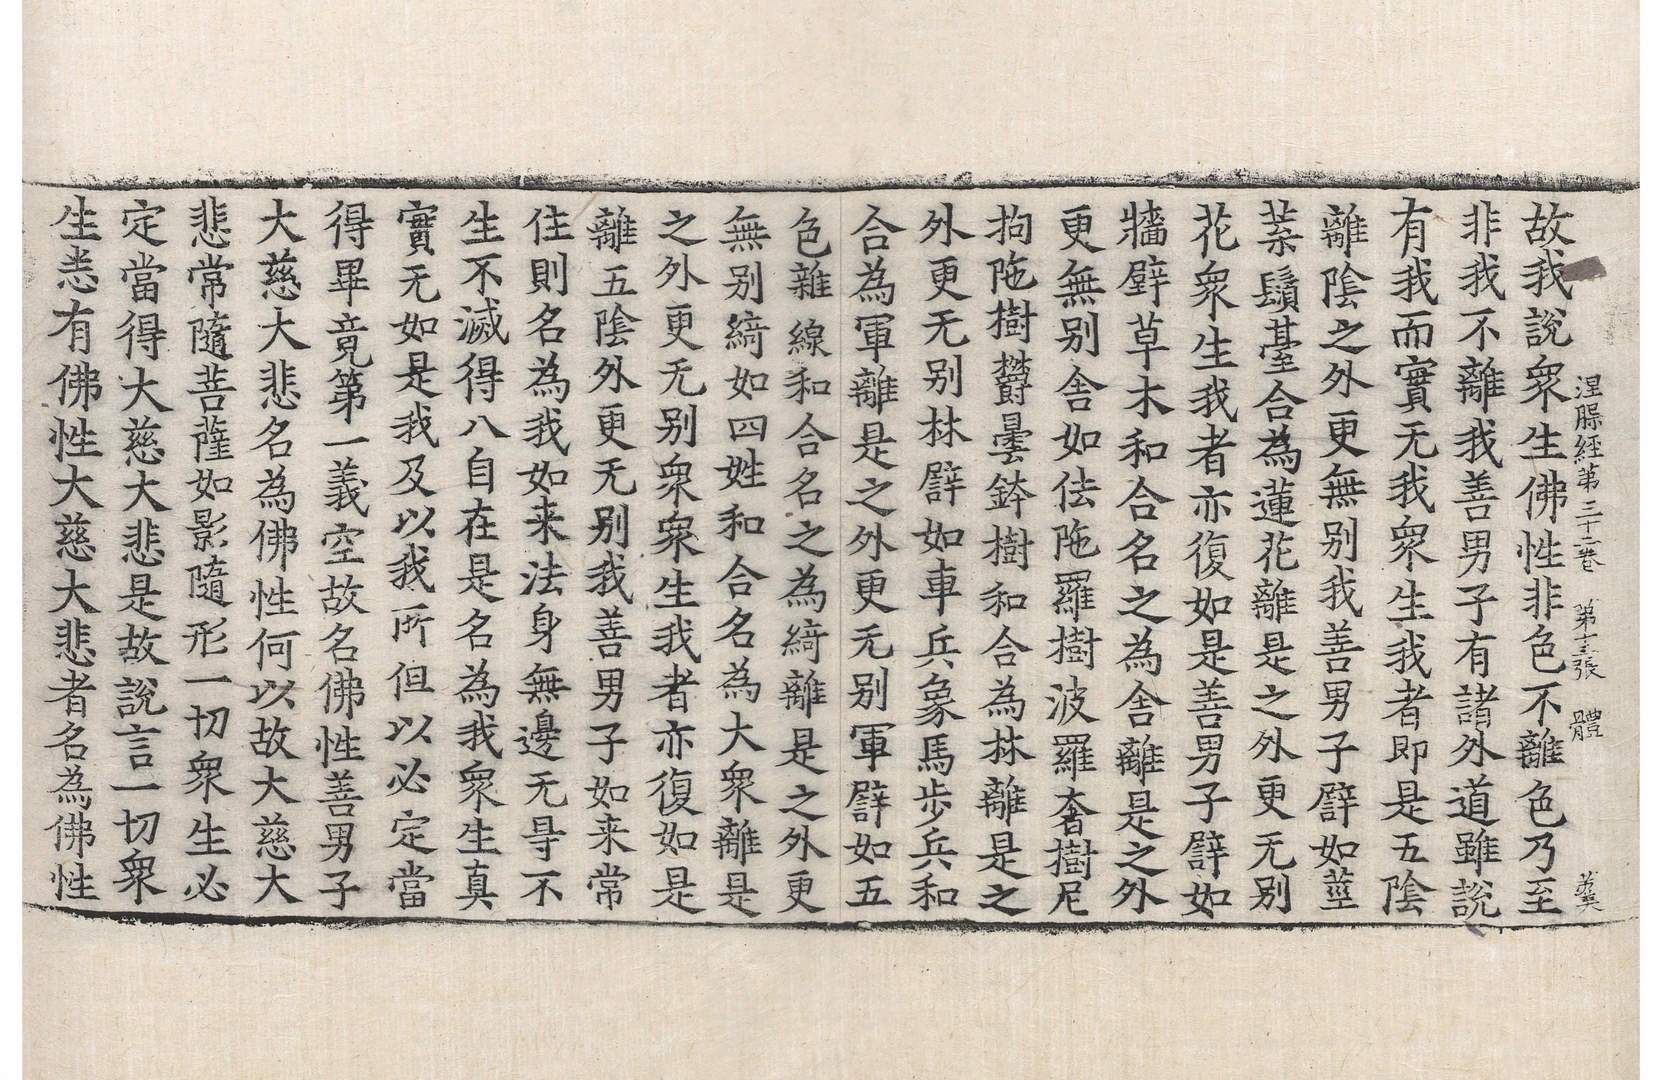 涅槃經第三十二卷 第十三張 體
故我說衆生佛性非色不離色乃至
非我不離我善男子有諸外道雖說
有我而實无我衆生我者即是五陰
離陰之外更無别我善男子譬如莖
葉鬚臺合為蓮花離是之外更无别
花衆生我者亦復如是善男子譬如
牆壁草木和合名之為舍離是之外
更無别舍如佉陁羅樹波羅奢樹尼
拘陁樹欝曇鉢樹和合為林離是之
外更无别林譬如車兵象馬步兵和
合為軍離是之外更无别軍譬如五
色雜線和合名之為綺離是之外更
無别綺如四姓和合名為大衆離是
之外更无别衆衆生我者亦復如是
離五陰外更无别我善男子如来常
住則名為我如来法身無邊无㝵不
生不滅得八自在是名為我衆生真
實无如是我及以我所但以必定當
得畢竟第一義空故名佛性善男子
大慈大悲名為佛性何以故大慈大
悲常隨菩薩如影隨形一切衆生必
定當得大慈大悲是故說言一切衆
生悉有佛性大慈大悲者名為佛性